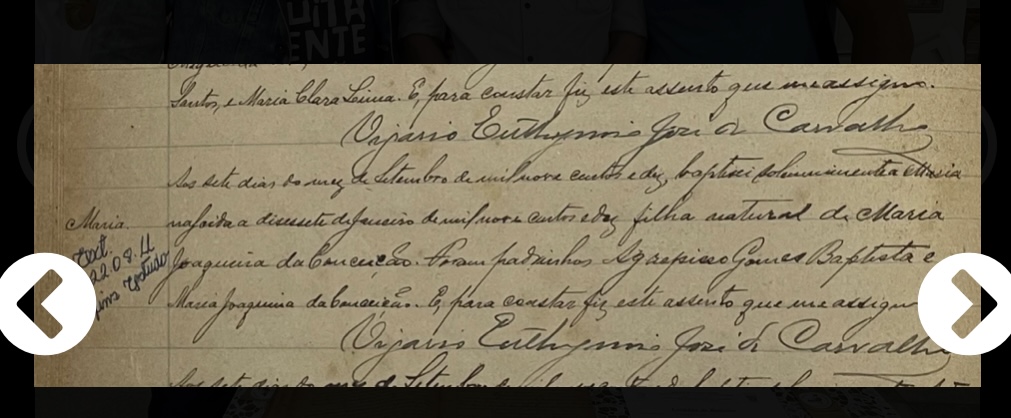 DITA
ENTE
Santos, e Maria Clara Lima. E, para constar fiz este assento que me assigno.
Vigario Euthymio José de Carvalho
Aos sete dias do mez de Setembro de mil nove centos e dez, baptisei solemnemente a Maria
nascida a desessete de Janeiro de mil nove centos e dez filha natural de Maria
Joaquina da Conceição. Foram padrinhos Gomes Baptista e
Maria Joaquina da Conceição. E, para constar fiz este assento que me assigno
Vigario Euthymio José de Carvalho
Aos sete dias do mez de Setembro
Maria.
22.08.